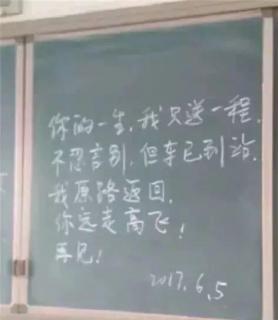 你的一生,我只送一程.
不忍言别,但车已到站.
我原路返回,
你远走高飞!
再见!
2017.6.5